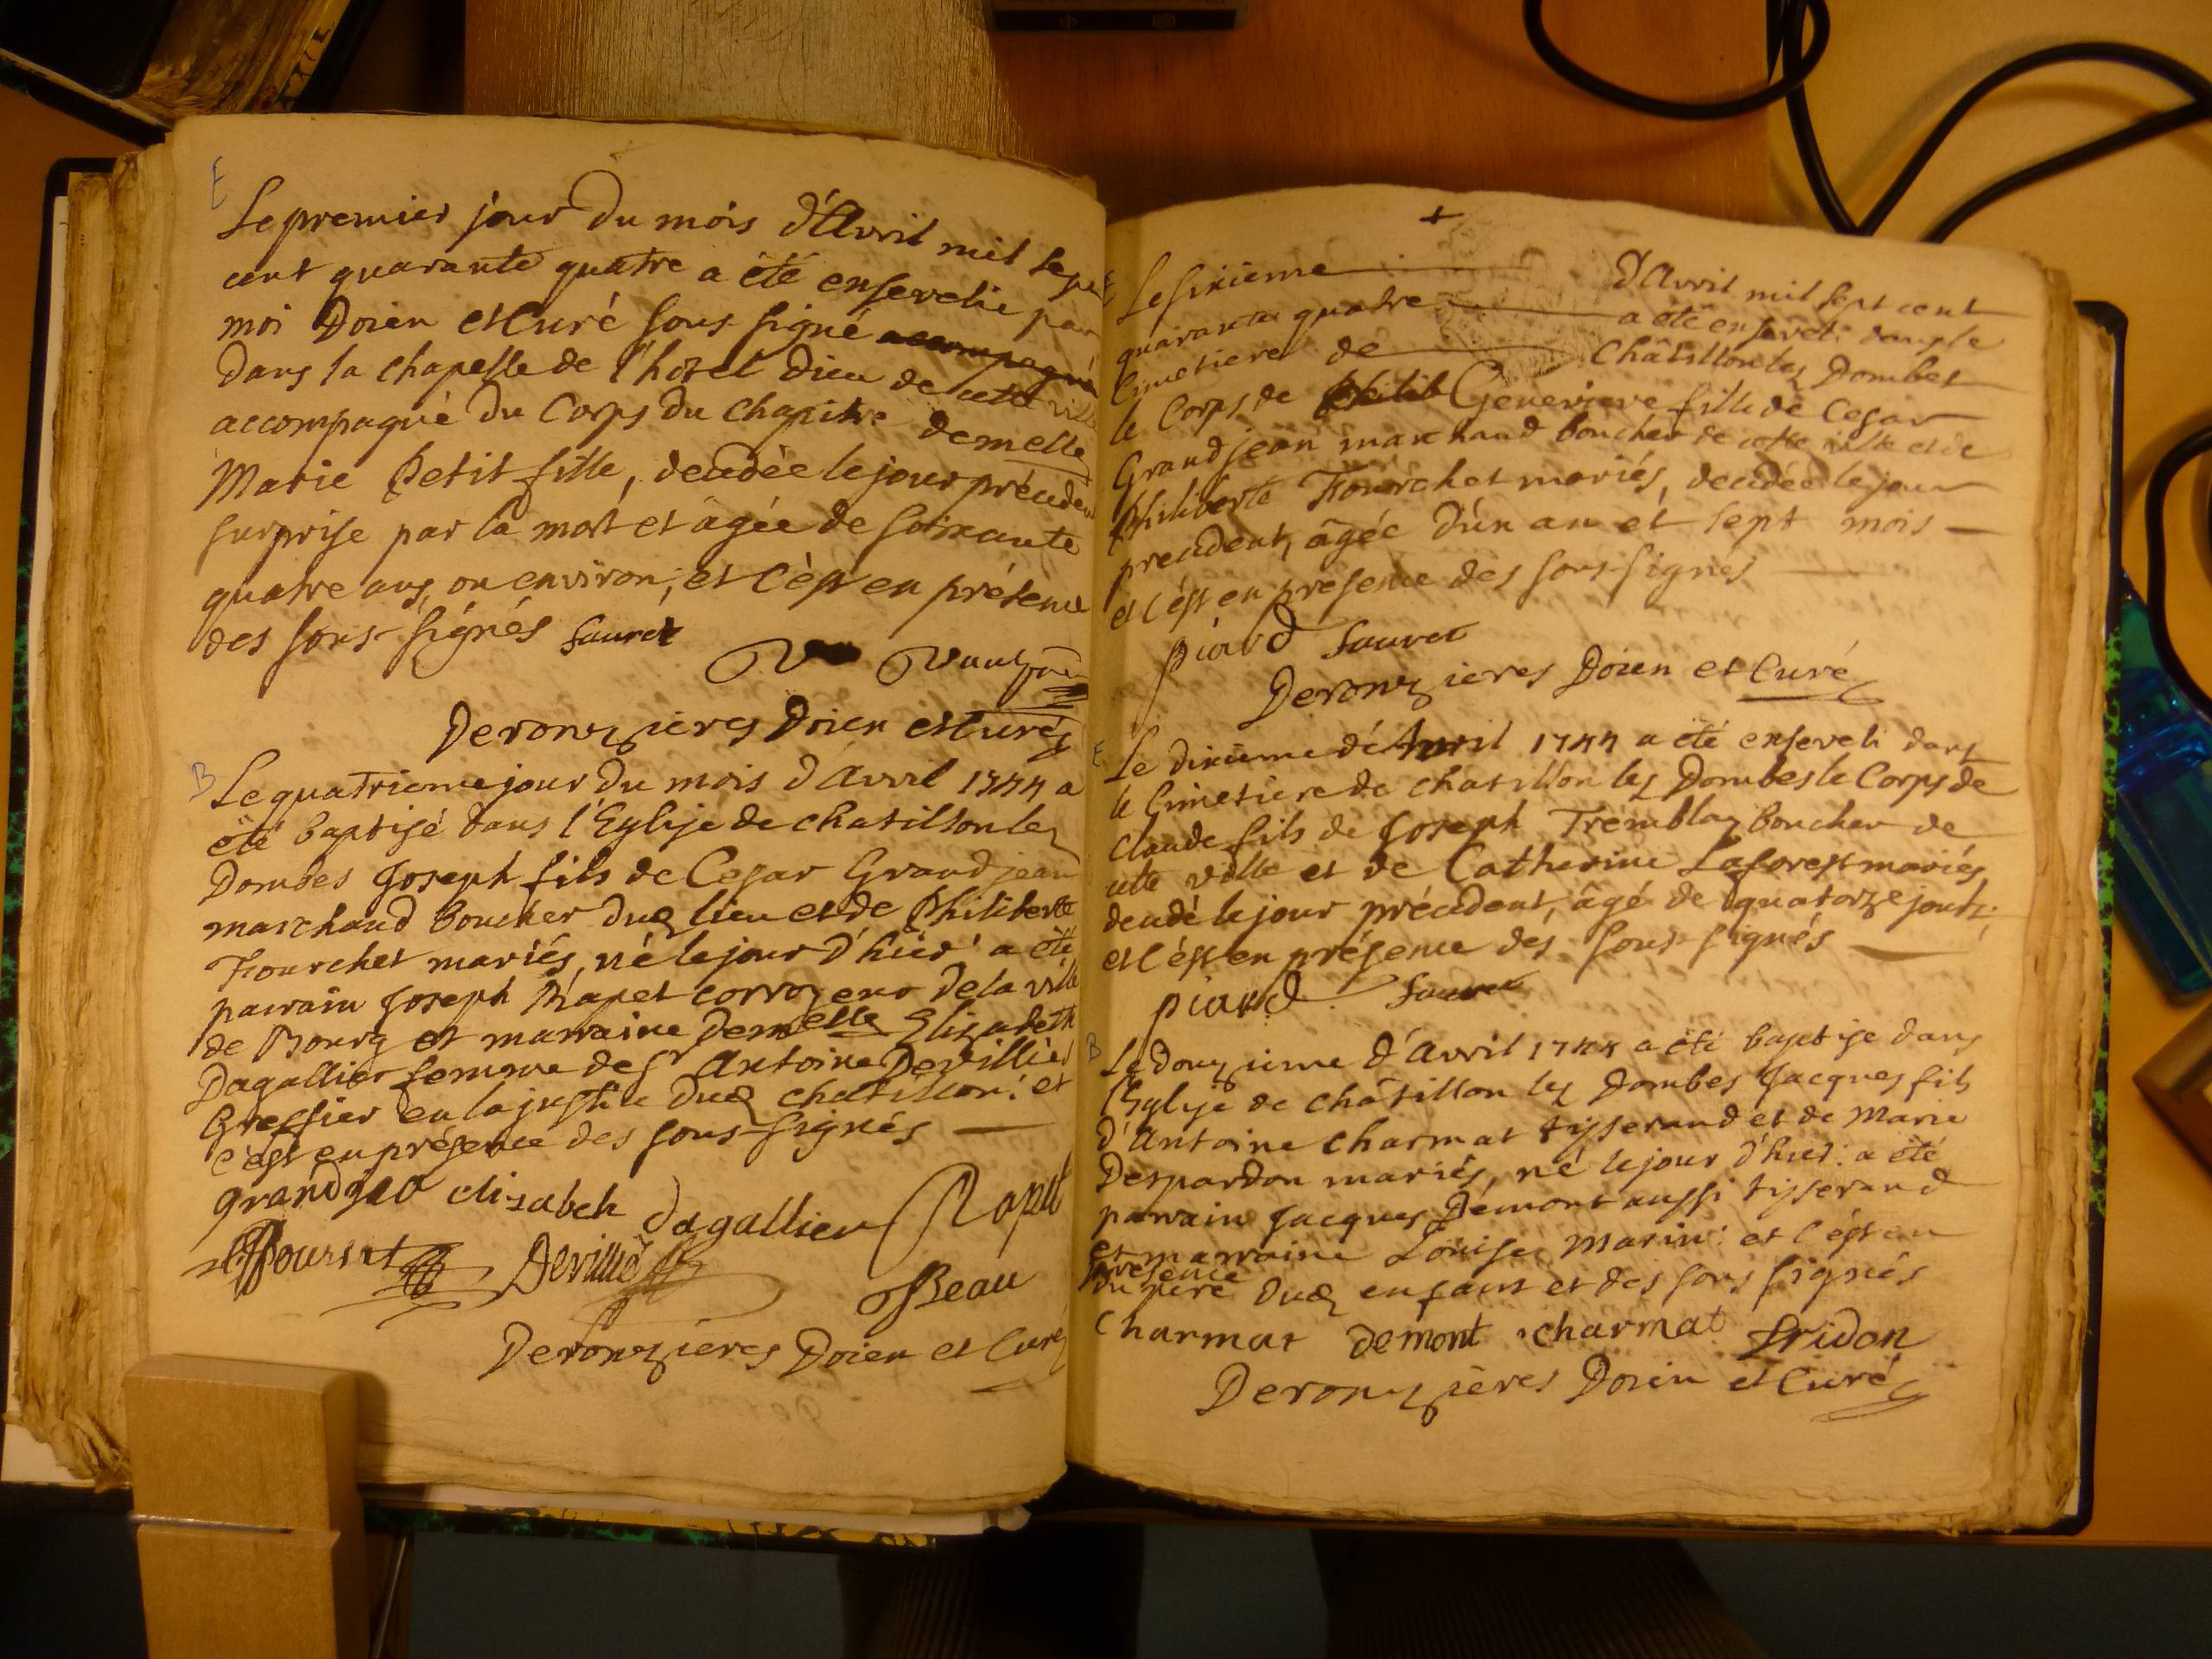 E
Le premier jour du mois d'Avril mil sept
cent quarante quatre a été ensevelie par
moi Doien et Curé sous signé accompagné
dans la chapelle de l'hotel Dieu de cette ville
accompagné du Corps du Chapitre demelle
Marie Petit fille, decedée le jour précedent
surprise par la mort et âgée de soixante
quatre ans, ou environ; et c'est en présence
des sous-signés Sauret
Deronzieres Doien et Curé
B
Le quatrieme jour du mois d'Avril 1744 a
été baptisé dans l'Eglise de Chatillon les
Dombes Joseph fils de Cesar Grandjean
marchand Boucher dud lieu et de Philiberte
Fourchet mariés, né le jour d'hier: a été
parrain Joseph Rapet corroyeur de la ville
de Bourg et marraine Demelle Elizabeth
Dagallier femme de Sr Antoine Devillier
Greffier en la justice dud Chatillon: et
c'est en présence des sous-signés
elizabeh dagallier Rapet
Beau
Deronzieres Doien et Curé
E
Le sixieme d'Avril mil sept cent
quarante quatre a été enseveli dans le
Cimetiere de Châtillon les Dombes
le Corps de Genevieve fille de Cesar
Grandjean marchand boucher de cette ville et de
Philiberte Fourchet mariés, decedée le jour
precedent, âgée d'un an et sept mois
et c'est en presence des sous-signés
piard Sauret
Deronzieres Doien et Curé
E
Le dixieme d'Avril 1744 a été enseveli dans
le Cimetiere de Chatillon les Dombes le Corps de
Claude fils de Joseph Tremblay Boucher de
cette ville et de Catherine Laforest mariés,
decedé le jour précedent, âgé de quatorze jours;
et c'est en présence des sous-signés
piard Sauret
B
Le douzieme d'Avril 1744 a été baptisé dans
l'Eglise de Châtillon les Dombes Jacques fils
d'Antoine Charmat tisserand et de Marie
Despardon mariés, né le jour d'hier: a été
parrain Jacques Demont aussi tisserand
et marraine Louise Marin: et c'est en
presence
du pere dud enfant et des sous signés
Charmat demont charmat fridon
Deronzières Doien et Curé